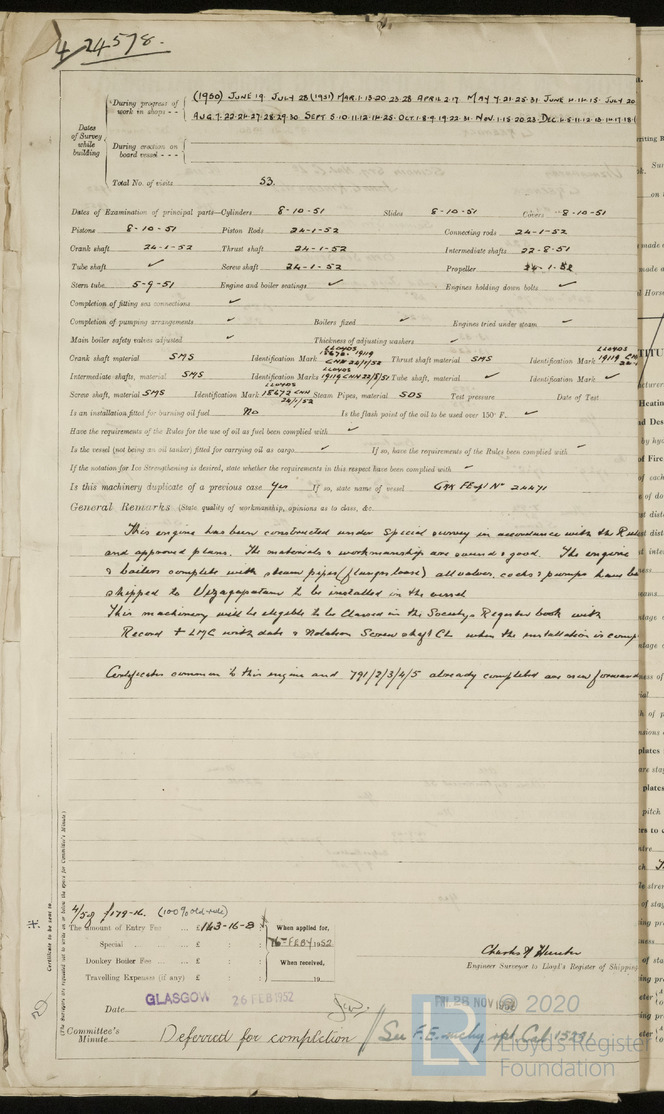 4 24578.
Dates of Survey while building
During progress of work in shops - -
(1950) JUNE 19. JULY 28 (1951) MAR. 1. 13. 20 23. 28 APRIL 2. 17 MAY 7. 21. 25. 31 JUNE 4. 14. 15. JULY 20
AUG. 7. 22. 24. 27. 28. 29. 30 SEPT. 5. 10. 11. 12. 14. 25. OCT. 1. 8. 9. 19. 22. 31 NOV. 1. 15. 20. 23. DEC. 4. 5. 11. 12. 13. 14. 17. 18
During erection on board vessel - - -
Total No. of visits 53.
Dates of Examination of principal parts—Cylinders 8-10-51 Slides 8-10-51 Covers 8-10-51
Pistons 8-10-51 Piston Rods 24-1-52 Connecting rods 24-1-52
Crank shaft 24-1-52 Thrust shaft 24-1-52 Intermediate shafts 22-8-51
Tube shaft ✓ Screw shaft 24-1-52 Propeller 24-1-52
Stern tube 5-9-51 Engine and boiler seatings ✓ Engines holding down bolts ✓
Completion of fitting sea connections ✓
Completion of pumping arrangements ✓ Boilers fixed ✓ Engines tried under steam ✓
Main boiler safety valves adjusted ✓ Thickness of adjusting washers ✓
Crank shaft material SMS Identification Mark LLOYDS 15676. 19119 CNH 24/1/52 Thrust shaft material SMS Identification Mark LLOYDS 19119
Intermediate shafts, material SMS Identification Marks LLOYDS 19119 CHH 22/8/51 Tube shaft, material ✓ Identification Mark ✓
Screw shaft, material SMS Identification Mark LLOYDS 15672 CNH 24/1/52 Steam Pipes, material SDS Test pressure Date of Test
Is an installation fitted for burning oil fuel No Is the flash point of the oil to be used over 150° F. ✓
Have the requirements of the Rules for the use of oil as fuel been complied with ✓
Is the vessel (not being an oil tanker) fitted for carrying oil as cargo ✓ If so, have the requirements of the Rules been complied with ✓
If the notation for Ice Strengthening is desired, state whether the requirements in this respect have been complied with ✓
Is this machinery duplicate of a previous case Yes If so, state name of vessel GRK FE rpt No 24471
General Remarks (State quality of workmanship, opinions as to class, &c.
This engine has been constructed under Special survey in accordance with the Rules
and approved plans. The materials & workmanship are sound & good. The engine
& boilers complete with steam pipes (flanges loose) all valves, cocks & pumps have been
shipped to Vizagapatam to be installed in the vessel
This machinery will be eligible to be Classed in the Society's Register book with
Record + LMC with date & Notation Screw shaft CL when the installation is
Certificates common to this engine and 791/2/3/4/5 already completed are now
4/5 of £179-16. (100% old-rule)
The amount of Entry Fee ... £143-16-8
Special ... £ : :
Donkey Boiler Fee ... £ : :
Travelling Expenses (if any) £ : :
When applied for,
FEBY 1952
When received,
19
Charles N Hunter
Engineer Surveyor to Lloyd's Register of Shipping
Date GLASGOW 26 FEB 1952
FRI. 28 NOV 1952
Committee's Minute Deferred for completion
See F.E. mchy rpt Cal 15291
Certificate to be sent to
(The Surveyors are requested not to write on or below the space for Committee's Minute.)
© 2020
LR
Lloyd's Register
Foundation